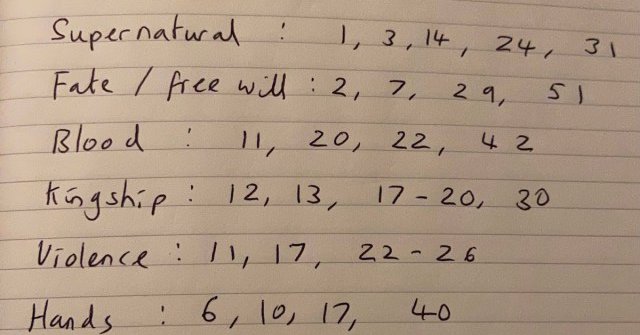 Supernatural : 1, 3, 14, 24, 31
Fate / free will : 2, 7, 29, 51
Blood : 11, 20, 22, 42
Kingship : 12, 13, 17-20, 30
Violence : 11, 17, 22-26
Hands : 6, 10, 17, 40